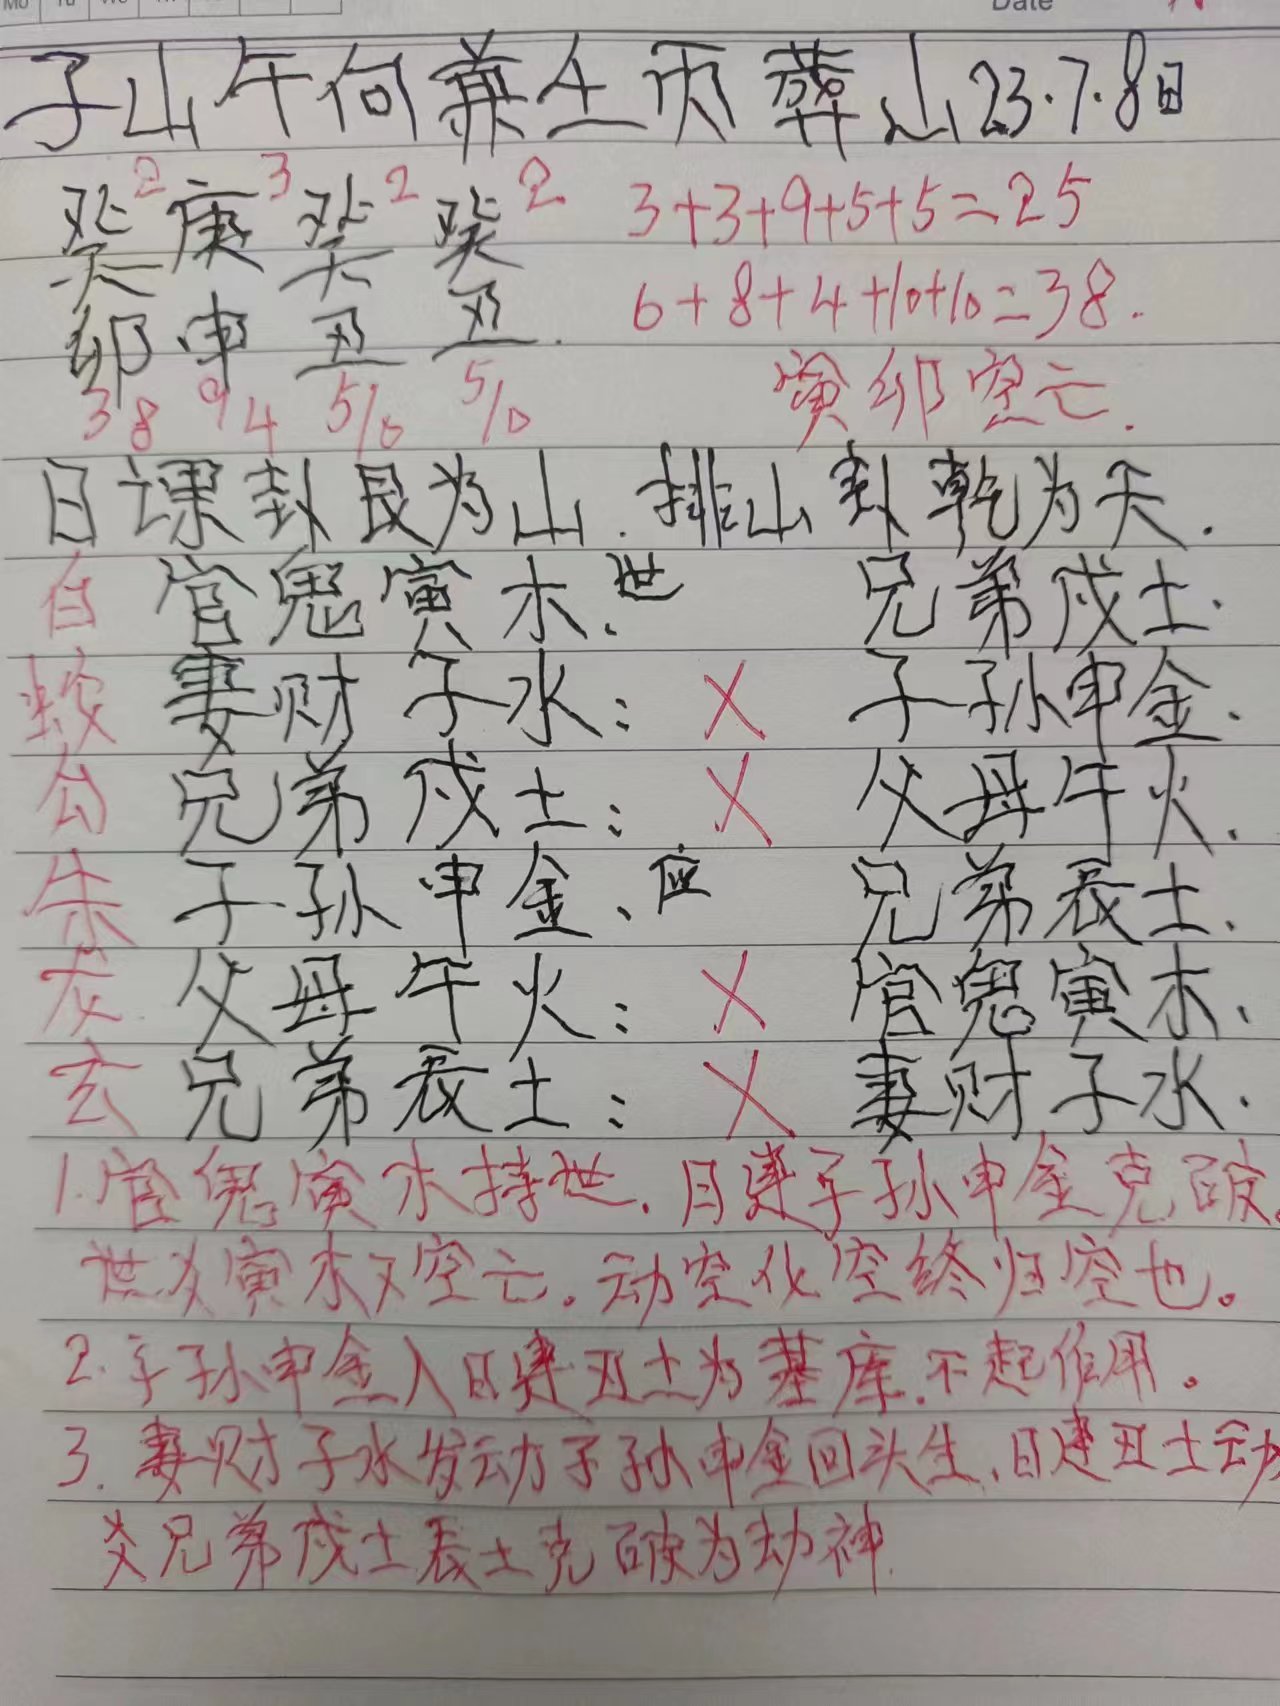 Mo Tu We Th Date
子山午向兼壬丙葬山23.7.8日
癸2 庚3 癸2 癸2 3+3+9+5+5=25
卯 申 丑 丑. 6+8+4+10+10=38.
38 94 5/10 5/10 寅卯空亡.
日课卦艮为山.排山卦乾为天.
白 官鬼寅木、世 兄弟戌土.
蛇 妻财子水: X 子孙申金.
勾 兄弟戌土: X 父母午火.
朱 子孙申金、应 兄弟辰土.
龙 父母午火: X 官鬼寅木、
玄 兄弟辰土: X 妻财子水.
1.官鬼寅木持世.月建子孙申金克破。
世爻寅木又空亡。动空化空终归空也。
2.子孙申金入日建丑土为墓库.不起作用。
3.妻财子水发动子孙申金回头生.日建丑土动
爻兄弟戌土辰土克破为劫神.